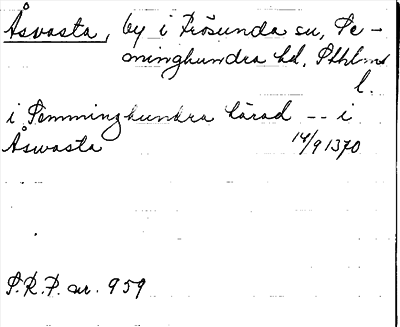 Åsvasta, by i Frösunda sn, Se-
minghundra hd, Sthlms
l.
i Sæmminghundra hærad -- i
Åswasta 14/9 1370
S.R.P. nr. 959